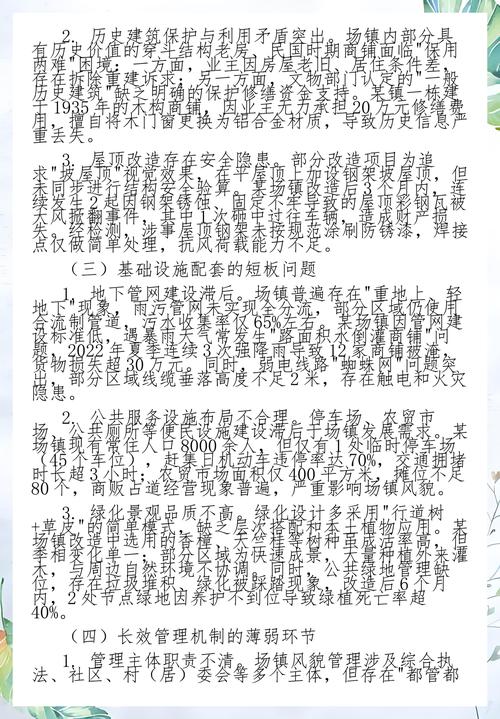 2. 历史建筑保护与利用矛盾突出。场镇内部分具
有历史价值的穿斗结构老房、民国时期商铺面临"保用
两难"困境：一方面，业主因房屋老旧、居住条件差，
存在拆除重建诉求；另一方面，文物部门认定的"一般
历史建筑"缺乏明确的保护修缮资金支持。某镇一栋建
于1935年的木构商铺，因业主无力承担20万元修缮费
用，擅自将木门窗更换为铝合金材质，导致历史信息严
重丢失。
3. 屋顶改造存在安全隐患。部分改造项目为追
求"坡屋顶"视觉效果，在平屋顶上加设钢架坡屋顶，但
未同步进行结构安全验算。某场镇改造后3个月内，连
续发生2起因钢架锈蚀、固定不牢导致的屋顶彩钢瓦被
大风掀翻事件，其中1次砸中过往车辆，造成财产损
失。经检测，涉事屋顶钢架未按规范涂刷防锈漆，焊接
点仅做简单处理，抗风荷载能力不足。
（三）基础设施配套的短板问题
1. 地下管网建设滞后。场镇普遍存在"重地上、轻
地下"现象，雨污管网未实现全分流，部分区域仍使用
合流制管道，污水收集率仅65%左右。某场镇因管网建
设标准低，遇暴雨天气常发生"路面积水倒灌商铺"问
题，2022年夏季连续3次强降雨导致12家商铺被淹，
货物损失超30万元。同时，弱电线路"蜘蛛网"问题突
出，部分区域线缆垂落高度不足2米，存在触电和火灾
隐患。
2. 公共服务设施布局不合理。停车场、农贸市
场、公共厕所等便民设施建设滞后于场镇发展需求。某
场镇现有常住人口8000余人，但仅有1处临时停车场
（45个车位），赶集日机动车违停率达70%，交通拥堵
时长超3小时；农贸市场面积仅400平方米，摊位不足
80个，商贩占道经营现象普遍，严重影响场镇风貌。
3. 绿化景观品质不高。绿化设计多采用"行道树
+草皮"的简单模式，缺乏层次搭配和本土植物应用。某
场镇改造中选用的香樟、天竺桂等树种虽成活率高，但
季相变化单一；部分区域为快速成景，大量种植外来灌
木，与周边自然环境不协调。同时，公共绿地管理缺
位，存在垃圾堆积、绿化被踩踏现象，改造后6个月
内，2处节点绿地因养护不到位导致绿植死亡率超
40%。
（四）长效管理机制的薄弱环节
1. 管理主体职责不清。场镇风貌管理涉及综合执
法、社区、村（居）委会等多个主体，但存在"都管都